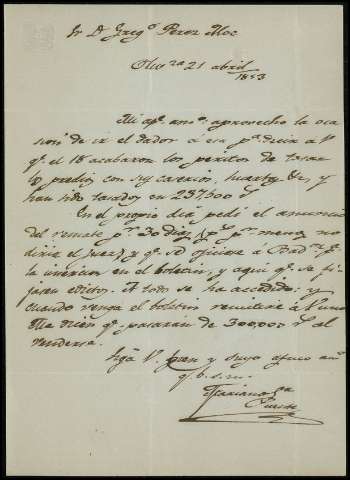 Sr D Gregº Perez Aloe
21 abril
1853
Mi apº amº aprovecho la oca
sion de ir el dador á esa pª decir a V
qº el 18 acabaron los peritos de tasar
predios con sus huertas &, y
han sido tasados en 237,600 r
En el propio dia pedi el anuncio
del remate pº 30 dias, (pº pº menos no
dice el Juez) y qº se oficiase á Badz pª
la insercion en el boletin, y aqui qº se fi-
jasen edictos. A todo se ha accedido: y
cuando venga el boletin remitiré a V uno
dicen qº pasaran de 300,000 r al
venderse.
V. bien y suyo afmo amº
q. b. s. m.
Mariano
Puente